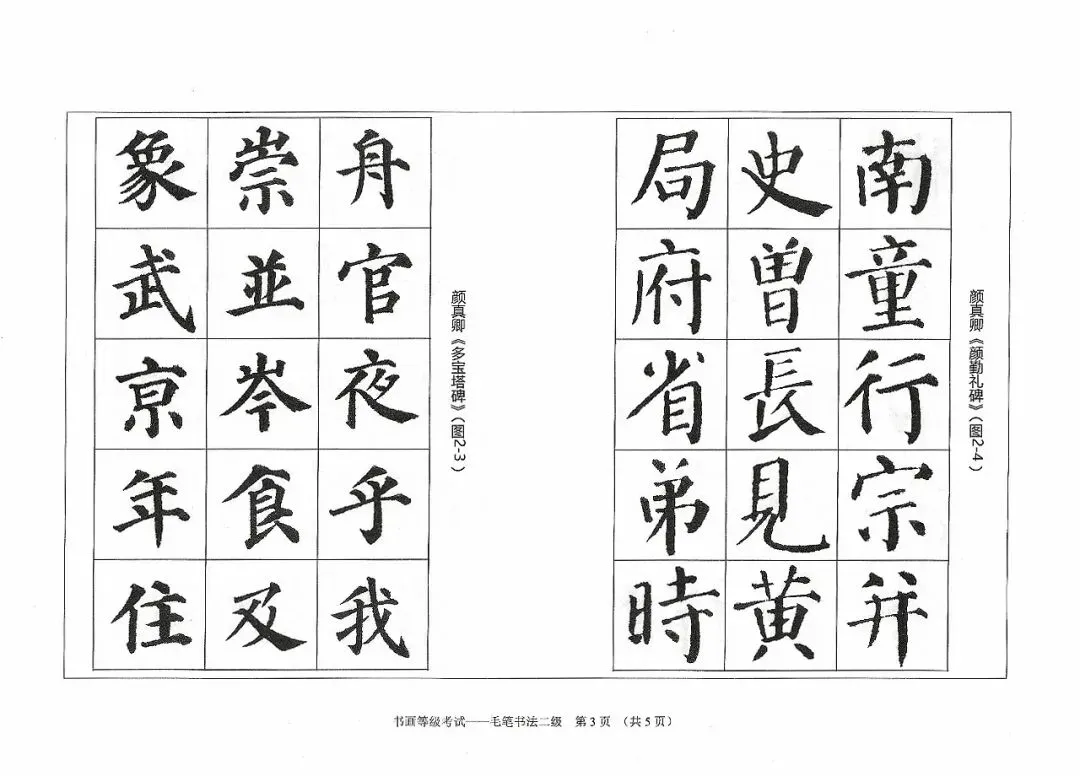 颜真卿《颜勤礼碑》（图2-4）
南童行宗并
史曽長見黄
局府省弟時
颜真卿《多宝塔碑》（图2-3）
舟官夜乎我
崇並岑食及
象武京年住
书画等级考试——毛笔书法二级 第3页 （共5页）